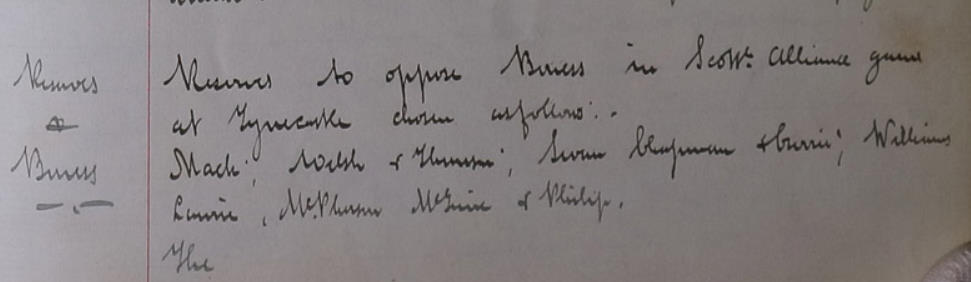 Reserves
v
Bo'ness
Reserves to oppose Bo'ness in Scott. Alliance game
at Tynecastle chosen as follows:-
Mack; Welsh & Thomson; Swan Chapman & Currie; Williams
Laurie, McPherson McGuire & Philip.
The